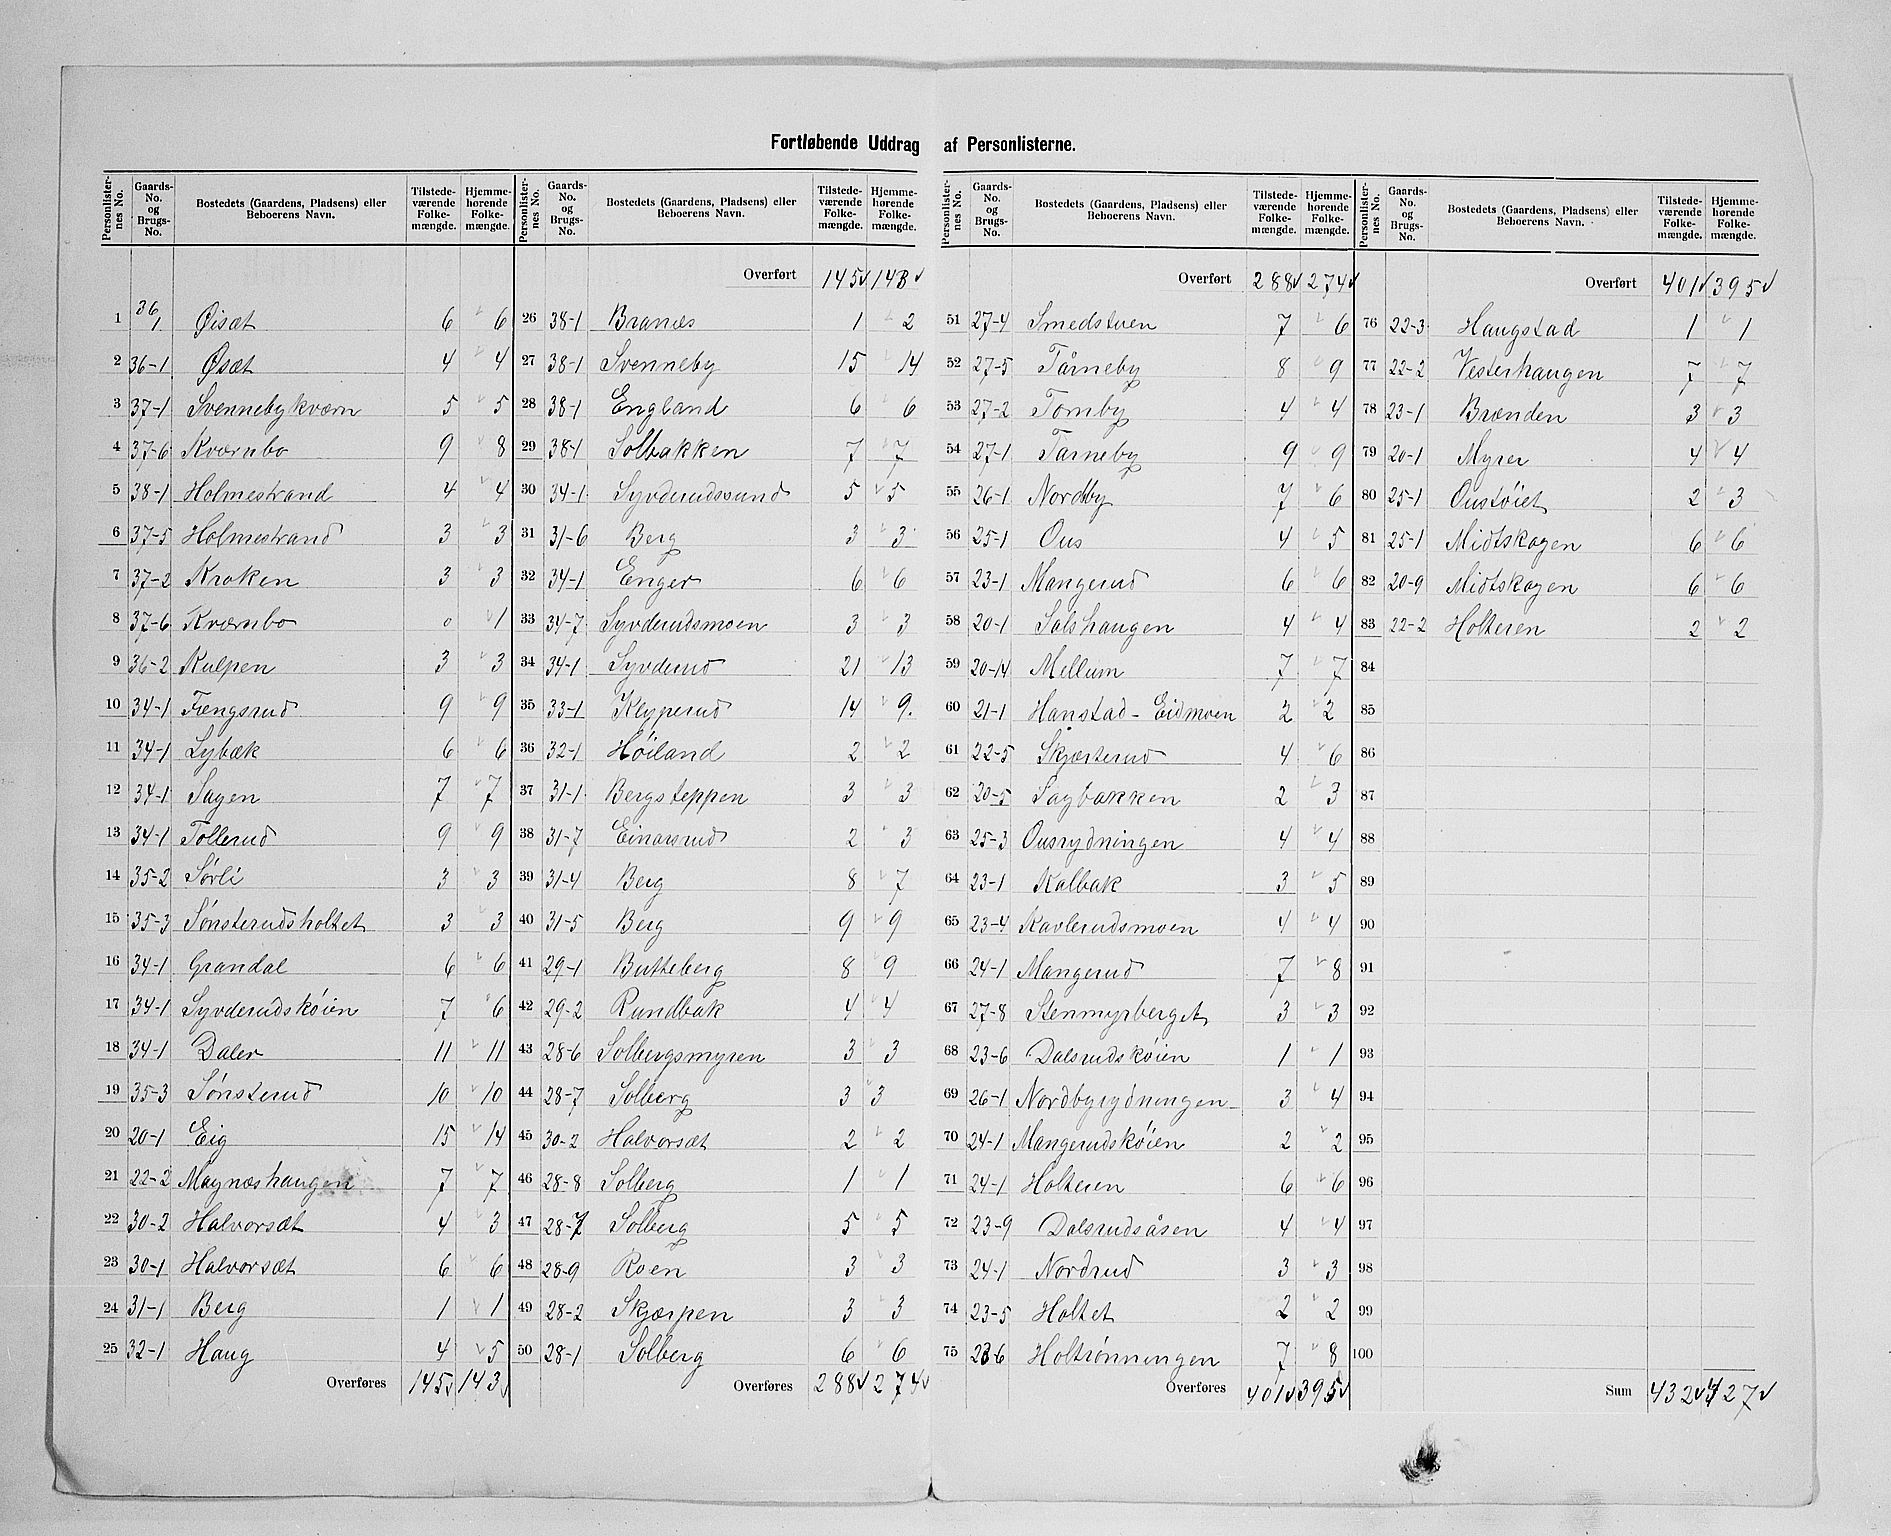 Fortløbende Uddrag af Personlisterne.
Personlisternes No. Gaards-No. og Brugs-No. Bostedets (Gaardens, Pladsens) eller Beboerens Navn. Tilstedeværende Folkemængde. Hjemmehørende Folkemængde.
1 36/1 Øisæt 6 6
2 36-1 Øsæt 4 4
3 37-1 Svennebykværn 5 5
4 37-6 Kværnbo 9 8
5 38-1 Holmestrand 4 4
6 37-5 Holmestrand 3 3
7 37-2 Kroken 3 3
8 37-6 Kværnbo 0 1
9 36-2 Kulpen 3 3
10 34-1 Fængsrud 9 9
11 34-1 Lybæk 6 6
12 34-1 Sagen 7 7
13 34-1 Tollerud 9 9
14 35-2 Sørli 3 3
15 35-3 Sønsterudsholtet 3 3
16 34-1 Grandal 6 6
17 34-1 Syverudskøien 7 6
18 34-1 Daler 11 11
19 35-3 Sønsterud 10 10
20 20-1 Eig 15 14
21 22-2 Magnæshaugen 7 7
22 30-2 Halvorsæt 4 3
23 30-1 Halvorsæt 6 6
24 31-1 Berg 1 1
25 32-1 Haug 4 5
Overføres 145 143
Personlisternes No. Gaards-No. og Brugs-No. Bostedets (Gaardens, Pladsens) eller Beboerens Navn. Tilstedeværende Folkemængde. Hjemmehørende Folkemængde.
Overført 145 143
26 38-1 Branæs 1 2
27 38-1 Svenneby 15 14
28 38-1 England 6 6
29 38-1 Solbakken 7 7
30 34-1 Syvderudssund 5 5
31 31-6 Berg 3 3
32 34-1 Enger 6 6
33 34-7 Syvderudsmoen 3 3
34 34-1 Syvderud 21 13
35 33-1 Klyperud 14 9
36 32-1 Høiland 2 2
37 31-1 Bergsteppen 3 3
38 31-7 Einarsrud 2 3
39 31-4 Berg 8 7
40 31-5 Berg 9 9
41 29-1 Butteberg 8 9
42 29-2 Rundbak 4 4
43 28-6 Solbergsmyren 3 3
44 28-7 Solberg 3 3
45 30-2 Halvorsæt 2 2
46 28-8 Solberg 1 1
47 28-7 Solberg 5 5
48 28-9 Roen 3 3
49 28-2 Skjærpen 3 3
50 28-1 Solberg 6 6
Overføres 288 274
Personlisternes No. Gaards-No. og Brugs-No. Bostedets (Gaardens, Pladsens) eller Beboerens Navn. Tilstedeværende Folkemængde. Hjemmehørende Folkemængde.
Overført 288 274
51 27-4 Smedstuen 7 6
52 27-5 Tårneby 8 9
53 27-2 Tomby 4 4
54 27-1 Tårneby 9 9
55 26-1 Nordby 7 6
56 25-1 Ous 4 5
57 23-1 Mangerud 6 6
58 20-1 Solshaugen 4 4
59 20-14 Mellum 7 7
60 21-1 Hanstad-Eidmoen 2 2
61 22-5 Skjæsterud 4 6
62 20-5 Sagbakken 2 3
63 25-3 Ousrydningen 4 4
64 23-1 Kalbak 3 5
65 23-4 Kavlerudsmoen 4 4
66 24-1 Mangerud 7 8
67 27-8 Stenmyrberget 3 3
68 23-6 Dalsrudskøien 1 1
69 26-1 Nordbyrydningen 3 4
70 24-1 Mangerudskøien 2 2
71 24-1 Holteren 6 6
72 23-9 Dalsrudsåsen 4 4
73 24-1 Nordrud 3 3
74 23-5 Holtet 2 2
75 23-6 Holtrønningen 7 8
Overføres 401 395
Personlisternes No. Gaards-No. og Brugs-No. Bostedets (Gaardens, Pladsens) eller Beboerens Navn. Tilstedeværende Folkemængde. Hjemmehørende Folkemængde.
Overført 401 395
76 22-3 Haugstad 1 1
77 22-2 Vesterhaugen 7 7
78 23-1 Brænden 3 3
79 20-1 Myrer 4 4
80 25-1 Oustøiet 2 3
81 25-1 Midtskogen 6 6
82 20-9 Midtskogen 6 6
83 22-2 Holteren 2 2
84
85
86
87
88
89
90
91
92
93
94
95
96
97
98
99
100
Sum 432 427